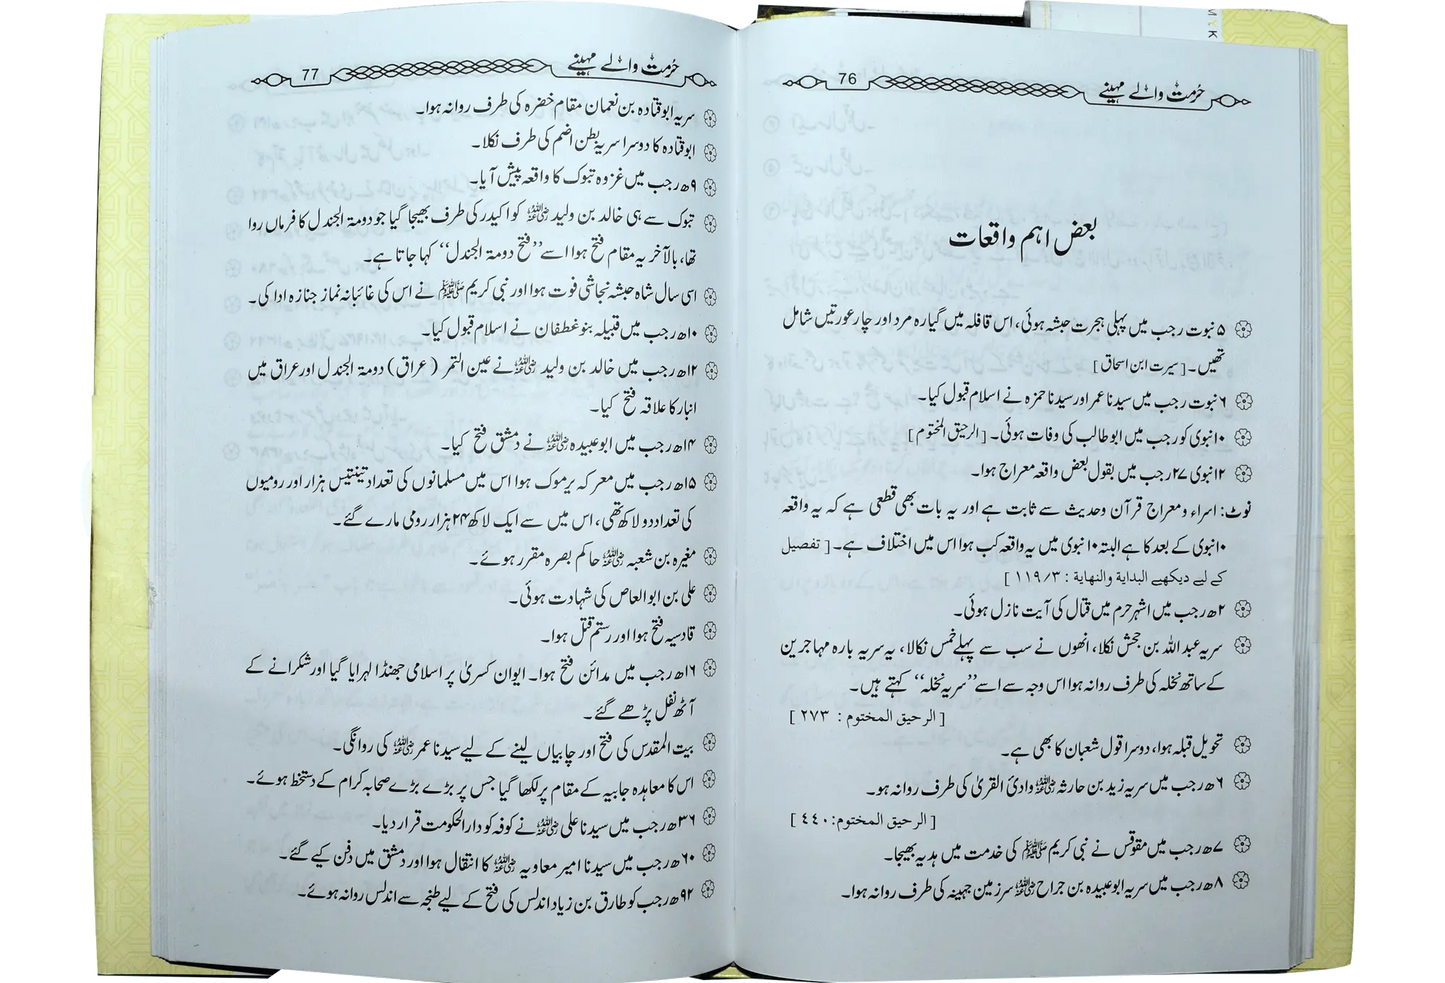 حرمت والے مہینے 76
بعض اہم واقعات
۵ نبوت رجب میں پہلی ہجرت حبشہ ہوئی، اس قافلہ میں گیارہ مرد اور چار عورتیں شامل
تھیں۔ [سیرت ابن اسحاق]
۶ نبوت رجب میں سیدنا عمر اور سیدنا حمزہ نے اسلام قبول کیا۔
۱۰ نبوی کو رجب میں ابوطالب کی وفات ہوئی۔ [الرحیق المختوم]
۱۲ نبوی ۲۷ رجب میں بقول بعض واقعہ معراج ہوا۔
نوٹ: اسراء و معراج قرآن وحدیث سے ثابت ہے اور یہ بات بھی قطعی ہے کہ یہ واقعہ
۱۰ نبوی کے بعد کا ہے البتہ ۱۰ نبوی میں یہ واقعہ کب ہوا اس میں اختلاف ہے۔ [تفصیل
کے لیے دیکھیے البداية والنهاية : ۱۱۹/۳ ]
۲ھ رجب میں اشہر حرم میں قتال کی آیت نازل ہوئی۔
سریہ عبد اللہ بن جحش نکلا، انھوں نے سب سے پہلے خمس نکالا، یہ سریہ بارہ مہاجرین
کے ساتھ نخلہ کی طرف روانہ ہوا اس وجہ سے اسے ’’سریہ نخلہ‘‘ کہتے ہیں۔
[ الرحيق المختوم : ٢٧٣ ]
تحویل قبلہ ہوا، دوسرا قول شعبان کا بھی ہے۔
۶ھ رجب میں سریہ زید بن حارثہ ﷛ وادیٔ القریٰ کی طرف روانہ ہو۔
[ الرحيق المختوم: ٤٤٠ ]
۷ھ رجب میں مقوقس نے نبی کریم ﷺ کی خدمت میں ہدیہ بھیجا۔
۸ھ رجب میں سریہ ابوعبیدہ بن جراح ﷛ سرزمین جہینہ کی طرف روانہ ہوا۔
حرمت والے مہینے 77
سریہ ابوقتادہ بن نعمان مقام خضرہ کی طرف روانہ ہوا۔
ابوقتادہ کا دوسرا سریہ بطن اضم کی طرف نکلا۔
۹ھ رجب میں غزوہ تبوک کا واقعہ پیش آیا۔
تبوک سے ہی خالد بن ولید ﷛ کو اکیدر کی طرف بھیجا گیا جو دومۃ الجندل کا فرماں روا
تھا، بالآخر یہ مقام فتح ہوا اسے ’’فتح دومۃ الجندل‘‘ کہا جاتا ہے۔
اسی سال شاہ حبشہ نجاشی فوت ہوا اور نبی کریم ﷺ نے اس کی غائبانہ نماز جنازہ ادا کی۔
۱۰ھ رجب میں قبیلہ بنو غطفان نے اسلام قبول کیا۔
۱۲ھ رجب میں خالد بن ولید ﷛ نے عین التمر (عراق) دومۃ الجندل اور عراق میں
انبار کا علاقہ فتح کیا۔
۱۴ھ رجب میں ابوعبیدہ ﷛ نے دمشق فتح کیا۔
۱۵ھ رجب میں معرکہ یرموک ہوا اس میں مسلمانوں کی تعداد تینتیس ہزار اور رومیوں
کی تعداد دو لاکھ تھی، اس میں سے ایک لاکھ ۲۴ ہزار رومی مارے گئے۔
مغیرہ بن شعبہ ﷛ حاکم بصرہ مقرر ہوئے۔
علی بن ابوالعاص کی شہادت ہوئی۔
قادسیہ فتح ہوا اور رستم قتل ہوا۔
۱۶ھ رجب میں مدائن فتح ہوا۔ ایوان کسریٰ پر اسلامی جھنڈا لہرایا گیا اور شکرانے کے
آٹھ نفل پڑھے گئے۔
بیت المقدس کی فتح اور چابیاں لینے کے لیے سیدنا عمر ﷛ کی روانگی۔
اس کا معاہدہ جابیہ کے مقام پر لکھا گیا جس پر بڑے بڑے صحابہ کرام کے دستخط ہوئے۔
۳۶ھ رجب میں سیدنا علی ﷛ نے کوفہ کو دارالحکومت قرار دیا۔
۶۰ھ رجب میں سیدنا امیر معاویہ ﷛ کا انتقال ہوا اور دمشق میں دفن کیے گئے۔
۹۲ھ رجب کو طارق بن زیاد اندلس کی فتح کے لیے طنجہ سے اندلس روانہ ہوئے۔